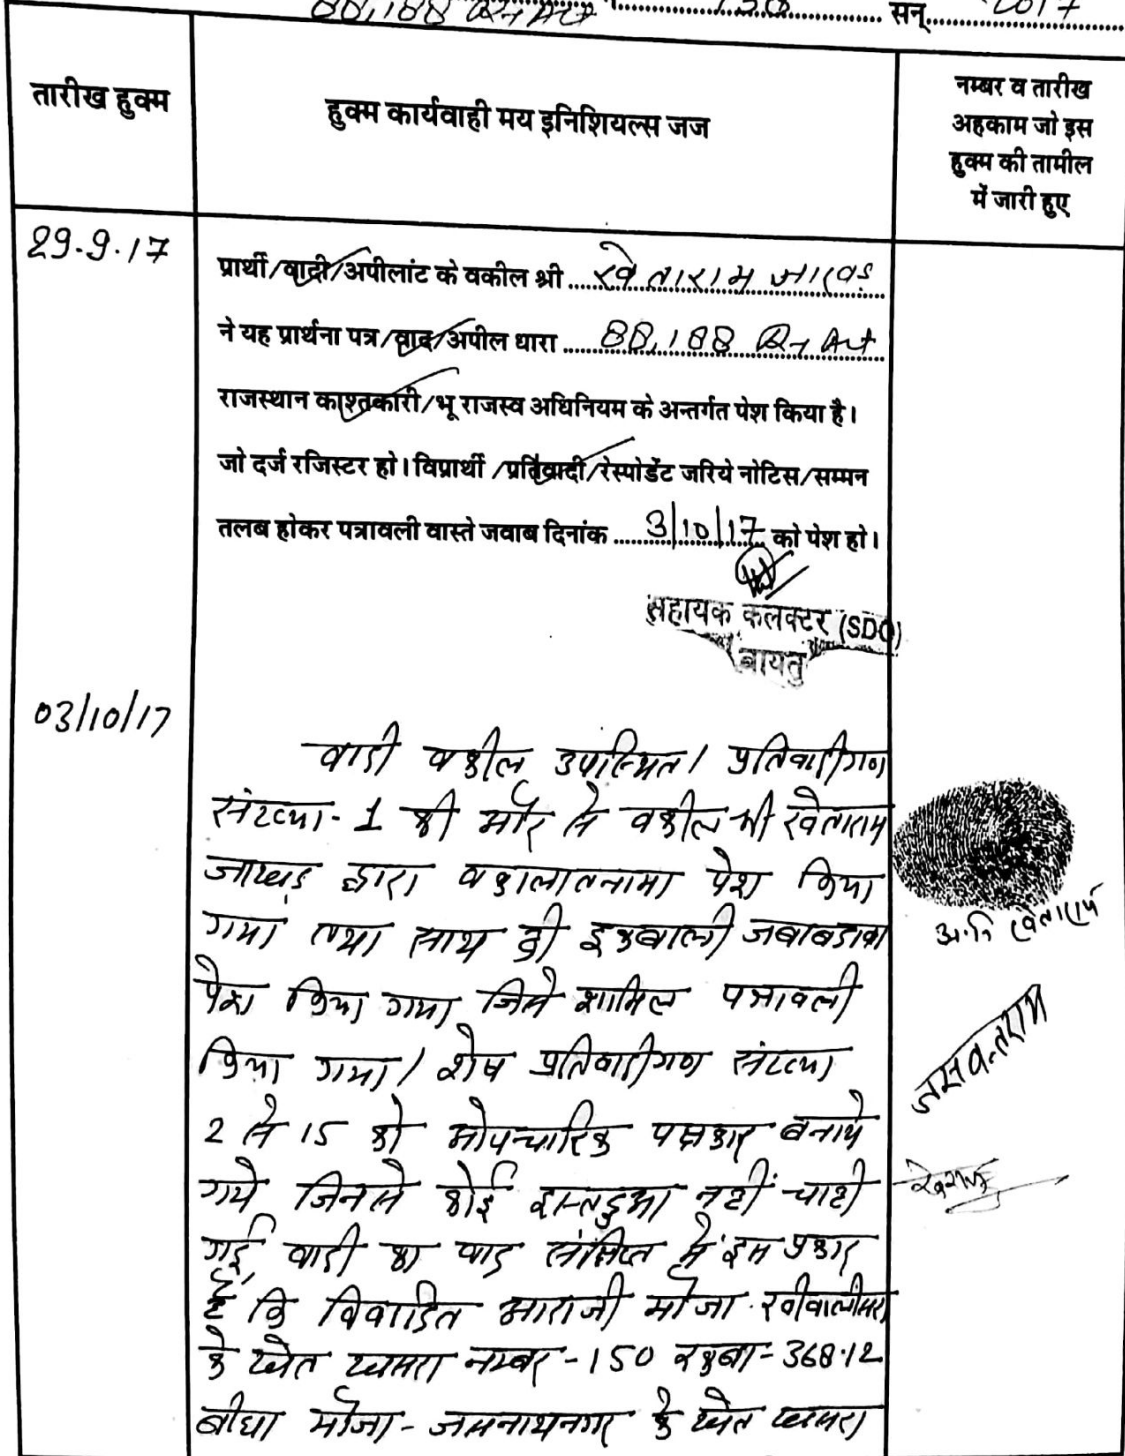 88,188 RT Act 130 सन् 2017
तारीख हुक्म
हुक्म कार्यवाही मय इनिशियल्स जज
नम्बर व तारीख
अहकाम जो इस
हुक्म की तामील
में जारी हुए
29.9.17
प्रार्थी/वादी/अपीलांट के वकील श्री खेताराम जाखड़
ने यह प्रार्थना पत्र/वाद/अपील धारा 88,188 RT Act
राजस्थान काश्तकारी/भू राजस्व अधिनियम के अन्तर्गत पेश किया है।
जो दर्ज रजिस्टर हो। विप्रार्थी/प्रतिवादी/रेस्पोडेंट जरिये नोटिस/सम्मन
तलब होकर पत्रावली वास्ते जवाब दिनांक 3/10/17 को पेश हो।
सहायक कलक्टर (SDO)
बायतु
03/10/17
वादी वकील उपस्थित। प्रतिवादीगण
संख्या-1 की ओर से वकील श्री खेताराम
जाखड़ द्वारा वकालातनामा पेश किया
गया तथा साथ ही इकबाली जवाबदावा
पेश किया गया जिसे शामिल पत्रावली
किया गया। शेष प्रतिवादीगण संख्या
2 से 15 को औपचारिक पक्षकार बनाये
गये जिनसे कोई दस्तदुआ नहीं चाही
गई, वादी का वाद संक्षिप्त में इस प्रकार
है कि विवादित आराजी मौजा
के खेत खसरा नम्बर-150 रकबा-368.12
बीघा मौजा-जसनाथनगर के खेत खसरा
अ.नि खेताराम
जसवन्तराम